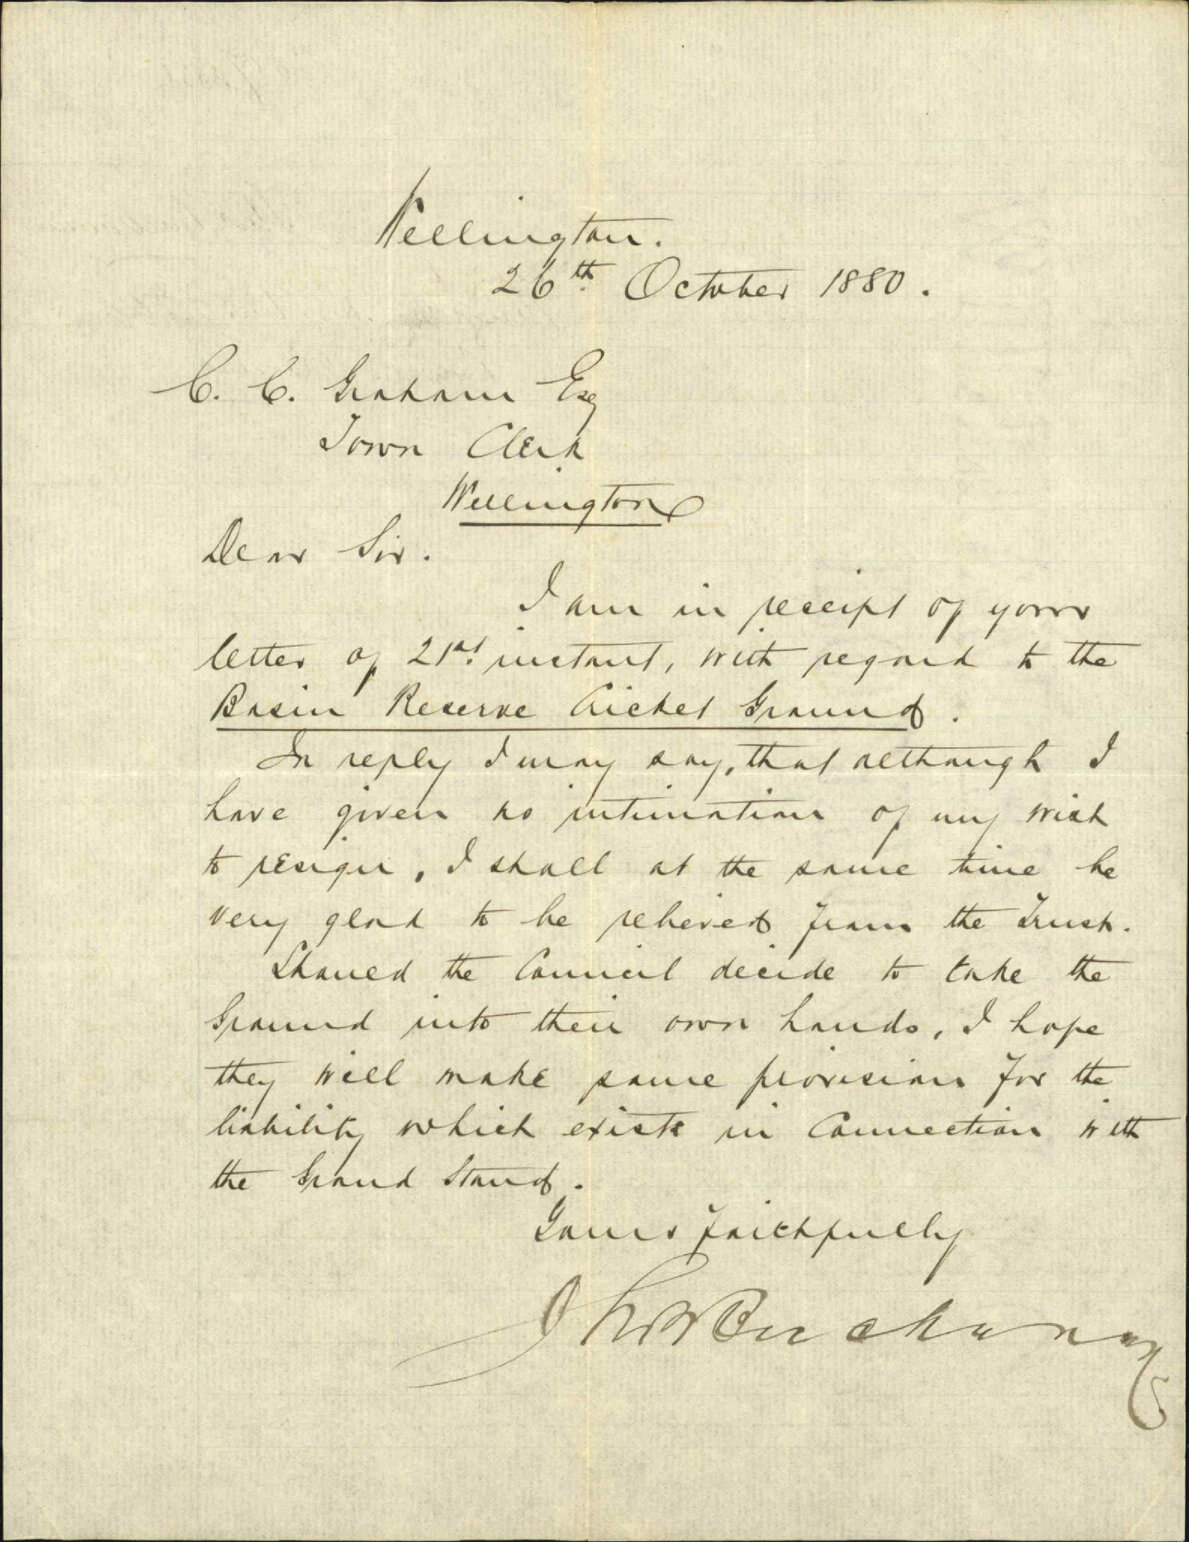 Wellington.
26th October 1880.
C. C. Graham Esq
Town Clerk
Wellington
Dear Sir.
I am in receipt of your
letter of 21st instant, with regard to the
Basin Reserve Cricket Ground.
In reply I may say, that although I
have given no intimation of my wish
to resign, I shall at the same time be
very glad to be relieved from the Trust.
Should the Council decide to take the
Ground into their own hands, I hope
they will make some provision for the
liability which exists in Connection with
the Grand Stand.
Yours faithfully
Buchanan